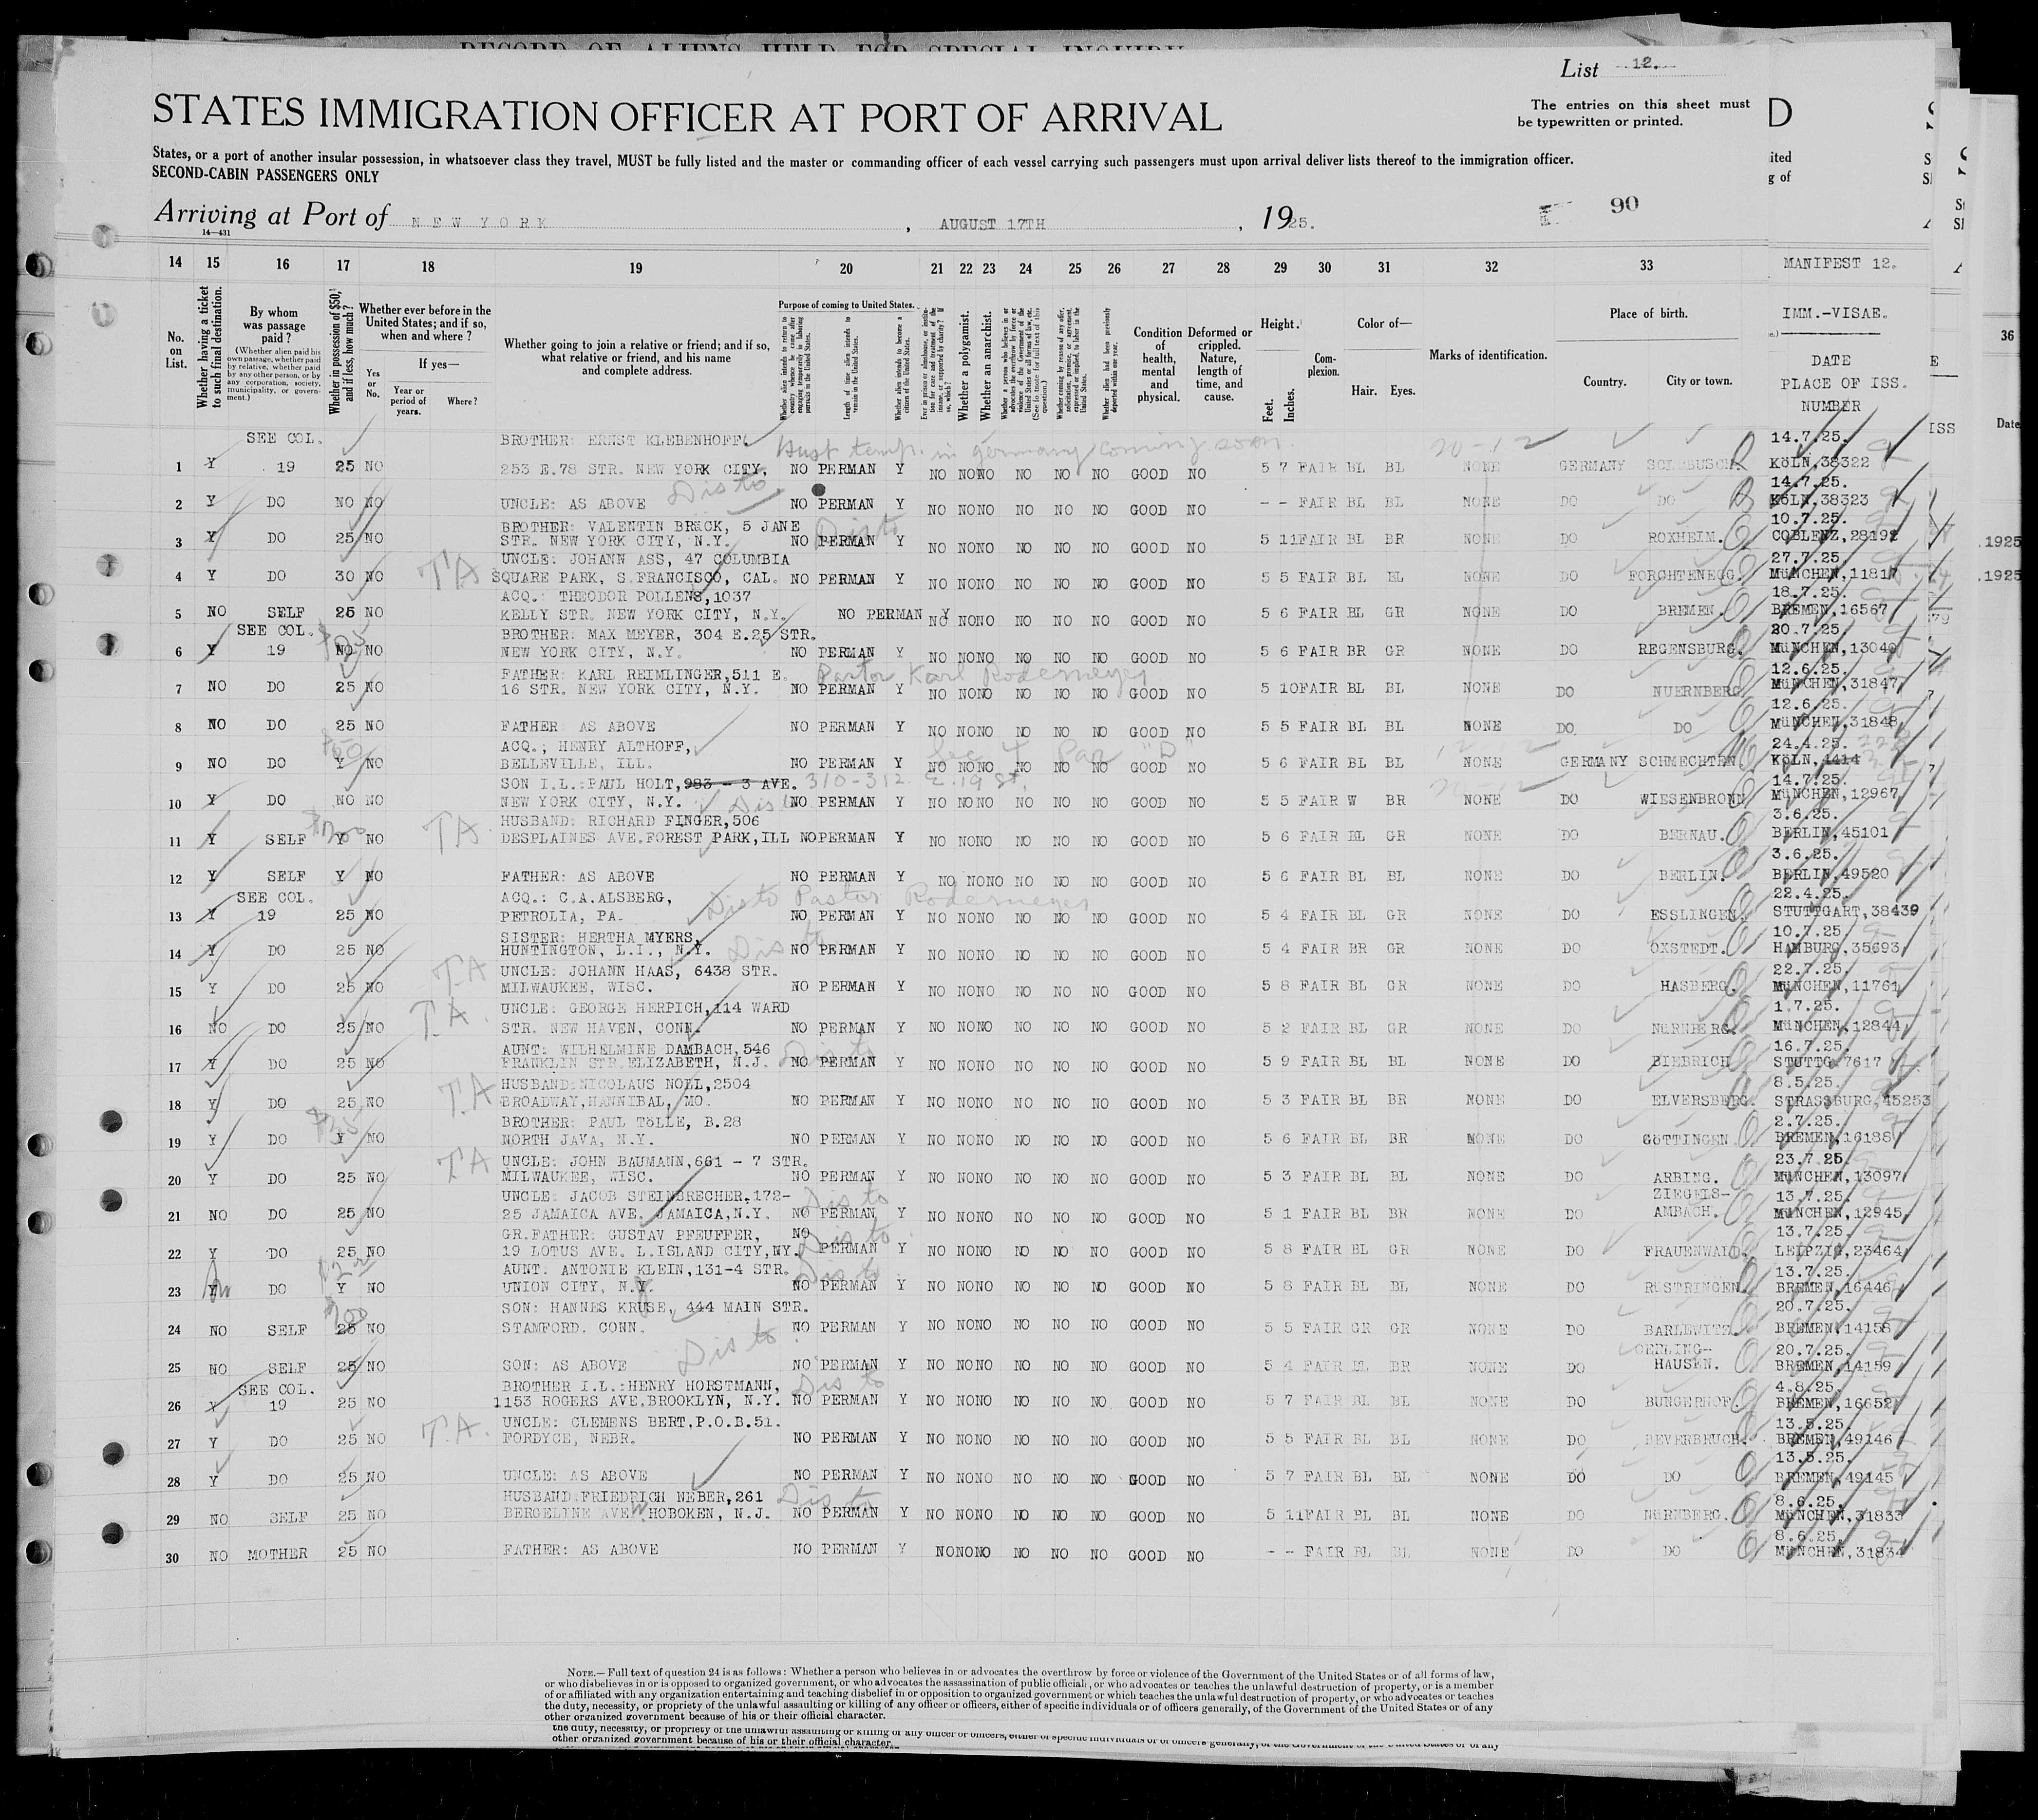 RECORD OF ALIENS HELD FOR SPECIAL INQUIRY
List 12.
STATES IMMIGRATION OFFICER AT PORT OF ARRIVAL
The entries on this sheet must
be typewritten or printed.
States, or a port of another insular possession, in whatsoever class they travel, MUST be fully listed and the master or commanding officer of each vessel carrying such passengers must upon arrival deliver lists thereof to the immigration officer.
SECOND-CABIN PASSENGERS ONLY
Arriving at Port of NEW YORK, AUGUST 17TH, 1925.
90
14—431
14 15 16 17 18 19 20 21 22 23 24 25 26 27 28 29 30 31 32 33
MANIFEST 12.
No. on List.
Whether having a ticket to such final destination.
By whom was passage paid?
(Whether alien paid his own passage, whether paid by relative, whether paid by any other person, or by any corporation, society, municipality, or government.)
Whether in possession of $50, and if less, how much?
Whether ever before in the United States; and if so, when and where?
If yes—
Yes or No.
Year or period of years.
Where?
Whether going to join a relative or friend; and if so, what relative or friend, and his name and complete address.
Purpose of coming to United States.
Whether alien intends to return to country whence he came after engaging temporarily in laboring pursuits in the United States.
Length of time alien intends to remain in the United States.
Whether alien intends to become a citizen of the United States.
Whether a polygamist.
Whether an anarchist.
Condition of health, mental and physical.
Deformed or crippled. Nature, length of time, and cause.
Height.
Feet. Inches.
Complexion.
Color of—
Hair. Eyes.
Marks of identification.
Place of birth.
Country. City or town.
IMM.-VISAE.
DATE
PLACE OF ISS.
NUMBER
SEE COL. BROTHER: ERNST KLEBENHOFF. Husb temp. in Germany coming soon. 20-12 14.7.25.
1 Y 19 25 NO 253 E.78 STR. NEW YORK CITY, NO PERMAN Y NO NO NO NO NO NO GOOD NO 5 7 FAIR BL BL NONE GERMANY KÖLN,38322
Dis to 14.7.25.
2 Y DO NO NO UNCLE: AS ABOVE NO PERMAN Y NO NO NO NO NO NO GOOD NO - - FAIR BL BL NONE DO DO KÖLN,38323
BROTHER: VALENTIN BRACK, 5 JANE Dis to 10.7.25.
3 Y DO 25 NO STR. NEW YORK CITY, N.Y. NO PERMAN Y NO NO NO NO NO NO GOOD NO 5 11 FAIR BL BR NONE DO ROXHEIM. COBLENZ,28192
UNCLE: JOHANN ASS, 47 COLUMBIA 27.7.25
4 Y DO 30 NO TA SQUARE PARK, S.FRANCISCO, CAL. NO PERMAN Y NO NO NO NO NO NO GOOD NO 5 5 FAIR BL BL NONE DO FORCHTENEGG. MÜNCHEN,11817
ACQ.: THEODOR POLLENS,1037 18.7.25.
5 NO SELF 25 NO KELLY STR. NEW YORK CITY, N.Y. NO PERMAN Y NO NO NO NO NO NO GOOD NO 5 6 FAIR BL GR NONE DO BREMEN. BREMEN,16567
SEE COL. BROTHER: MAX MEYER, 304 E.25 STR. 20.7.25.
6 Y 19 NO NO NEW YORK CITY, N.Y. NO PERMAN Y NO NO NO NO NO NO GOOD NO 5 6 FAIR BR GR NONE DO REGENSBURG. MÜNCHEN,13040
FATHER: KARL REIMLINGER,511 E. Pastor Karl Rodemeyer 12.6.25.
7 NO DO 25 NO 16 STR. NEW YORK CITY, N.Y. NO PERMAN Y NO NO NO NO NO NO GOOD NO 5 10 FAIR BL BL NONE DO NUERNBERG MÜNCHEN,31847
12.6.25.
8 NO DO 25 NO FATHER: AS ABOVE NO PERMAN Y NO NO NO NO NO NO GOOD NO 5 5 FAIR BL BL NONE DO DO MÜNCHEN,31848
ACQ., HENRY ALTHOFF, Sec 4 Par "D" 24.4.25.
9 NO DO Y NO BELLEVILLE, ILL. NO PERMAN Y NO NO NO NO NO NO GOOD NO 5 6 FAIR BL BL NONE GERMANY SCHMECHTEN KÖLN,4414
SON I.L.:PAUL HOLT,983 - 3 AVE. 310-312 E. 19 St. 20-12 14.7.25.
10 Y DO NO NO NEW YORK CITY, N.Y. Dis to NO PERMAN Y NO NO NO NO NO NO GOOD NO 5 5 FAIR W BR NONE DO WIESENBRONN MÜNCHEN,12967
HUSBAND: RICHARD FINGER,506 3.6.25.
11 Y SELF Y NO TA DESPLAINES AVE.FOREST PARK,ILL NO PERMAN Y NO NO NO NO NO NO GOOD NO 5 6 FAIR BL GR NONE DO BERNAU. BERLIN,45101
3.6.25.
12 Y SELF Y NO FATHER: AS ABOVE NO PERMAN Y NO NO NO NO NO NO GOOD NO 5 6 FAIR BL BL NONE DO BERLIN. BERLIN,49520
SEE COL. ACQ.: C.A.ALSBERG, Dis to Pastor Rodemeyer 22.4.25.
13 Y 19 25 NO PETROLIA, PA. NO PERMAN Y NO NO NO NO NO NO GOOD NO 5 4 FAIR BL GR NONE DO ESSLINGEN. STUTTGART,38439
SISTER: HERTHA MYERS, Dis to 10.7.25.
14 Y DO 25 NO HUNTINGTON, L.I., N.Y. NO PERMAN Y NO NO NO NO NO NO GOOD NO 5 4 FAIR BR GR NONE DO OXSTEDT. HAMBURG,35693
UNCLE: JOHANN HAAS, 6438 STR. 22.7.25.
15 Y DO 25 NO TA MILWAUKEE, WISC. NO PERMAN Y NO NO NO NO NO NO GOOD NO 5 8 FAIR BL GR NONE DO HASBERG. MÜNCHEN,11761
UNCLE: GEORGE HERPICH,114 WARD 1.7.25.
16 NO DO 25 NO T.A. STR. NEW HAVEN, CONN. NO PERMAN Y NO NO NO NO NO NO GOOD NO 5 2 FAIR BL GR NONE DO NÜRNBERG. MÜNCHEN,12844
AUNT: WILHELMINE DAMBACH,546 Dis to 16.7.25.
17 Y DO 25 NO FRANKLIN STR.ELIZABETH, N.J. NO PERMAN Y NO NO NO NO NO NO GOOD NO 5 9 FAIR BL BL NONE DO BIEBRICH STUTTG.7617
HUSBAND:NICOLAUS NOLL,2504 8.5.25.
18 Y DO 25 NO T.A BROADWAY,HANNIBAL, MO. NO PERMAN Y NO NO NO NO NO NO GOOD NO 5 3 FAIR BL BR NONE DO ELVERSBERG. STRASSBURG,45253
BROTHER: PAUL TÖLLE, B.28 2.7.25.
19 Y DO Y NO NORTH JAVA, N.Y. NO PERMAN Y NO NO NO NO NO NO GOOD NO 5 6 FAIR BL BR NONE DO GÖTTINGEN BREMEN,16188
UNCLE: JOHN BAUMANN,661 - 7 STR. 23.7.25
20 Y DO 25 NO TA MILWAUKEE, WISC. NO PERMAN Y NO NO NO NO NO NO GOOD NO 5 3 FAIR BL BL NONE DO ARBING. MÜNCHEN,13097
UNCLE: JACOB STEINBRECHER,172- Dis to ZIEGELS- 13.7.25.
21 NO DO 25 NO 25 JAMAICA AVE. JAMAICA,N.Y. NO PERMAN Y NO NO NO NO NO NO GOOD NO 5 1 FAIR BL BR NONE DO AMBACH. MÜNCHEN,12945
GR.FATHER: GUSTAV PFEUFFER, NO Dis to 13.7.25.
22 Y DO 25 NO 19 LOTUS AVE. L.ISLAND CITY,NY. PERMAN Y NO NO NO NO NO NO GOOD NO 5 8 FAIR BL GR NONE DO FRAUENWALD. LEIPZIG,23464
AUNT: ANTONIE KLEIN,131-4 STR. Dis to 13.7.25.
23 Y DO Y NO UNION CITY, N.Y. NO PERMAN Y NO NO NO NO NO NO GOOD NO 5 8 FAIR BL BL NONE DO RÜSTRINGEN BREMEN,16446
SON: HANNES KRUSE, 444 MAIN STR. 20.7.25.
24 NO SELF 25 NO STAMFORD. CONN. NO PERMAN Y NO NO NO NO NO NO GOOD NO 5 5 FAIR GR GR NONE DO BARLEWITZ. BREMEN,14158
Dis to OERLING- 20.7.25.
25 NO SELF 25 NO SON: AS ABOVE NO PERMAN Y NO NO NO NO NO NO GOOD NO 5 4 FAIR BL BR NONE DO HAUSEN. BREMEN,14159
SEE COL. BROTHER I.L.:HENRY HORSTMANN, Dis to 4.8.25.
26 Y 19 25 NO 1153 ROGERS AVE.BROOKLYN, N.Y. NO PERMAN Y NO NO NO NO NO NO GOOD NO 5 7 FAIR BL BL NONE DO BUNGERHOF. BREMEN,16652
UNCLE: CLEMENS BERT,P.O.B.51. 13.5.25.
27 Y DO 25 NO T.A. FORDYCE, NEBR. NO PERMAN Y NO NO NO NO NO NO GOOD NO 5 5 FAIR BL BL NONE DO BEVERBRUCH. BREMEN,49146
13.5.25.
28 Y DO 25 NO UNCLE: AS ABOVE NO PERMAN Y NO NO NO NO NO NO GOOD NO 5 7 FAIR BL BL NONE DO DO BREMEN,49145
HUSBAND:FRIEDRICH NEBER,261 Dis to 8.6.25.
29 NO SELF 25 NO BERGELINE AVE. W HOBOKEN, N.J. NO PERMAN Y NO NO NO NO NO NO GOOD NO 5 11 FAIR BL BL NONE DO NÜRNBERG. MÜNCHEN,31833
8.6.25.
30 NO MOTHER 25 NO FATHER: AS ABOVE NO PERMAN Y NO NO NO NO NO NO GOOD NO - - FAIR BL BL NONE DO DO MÜNCHEN,31834
NOTE.—Full text of question 24 is as follows: Whether a person who believes in or advocates the overthrow by force or violence of the Government of the United States or of all forms of law,
or who disbelieves in or is opposed to organized government, or who advocates the assassination of public officials, or who advocates or teaches the unlawful destruction of property, or is a member
of or affiliated with any organization entertaining and teaching disbelief in or opposition to organized government or which teaches the unlawful destruction of property, or who advocates or teaches
the duty, necessity, or propriety of the unlawful assaulting or killing of any officer or officers, either of specific individuals or of officers generally, of the Government of the United States or of any
other organized government because of his or their official character.
the duty, necessity, or propriety of the unlawful assaulting or killing of any officer or officers, either of specific individuals or of officers generally, of the Government of the United States or of any
other organized government because of his or their official character.
D
ited
g of
ISS
36
Date
1925
1925